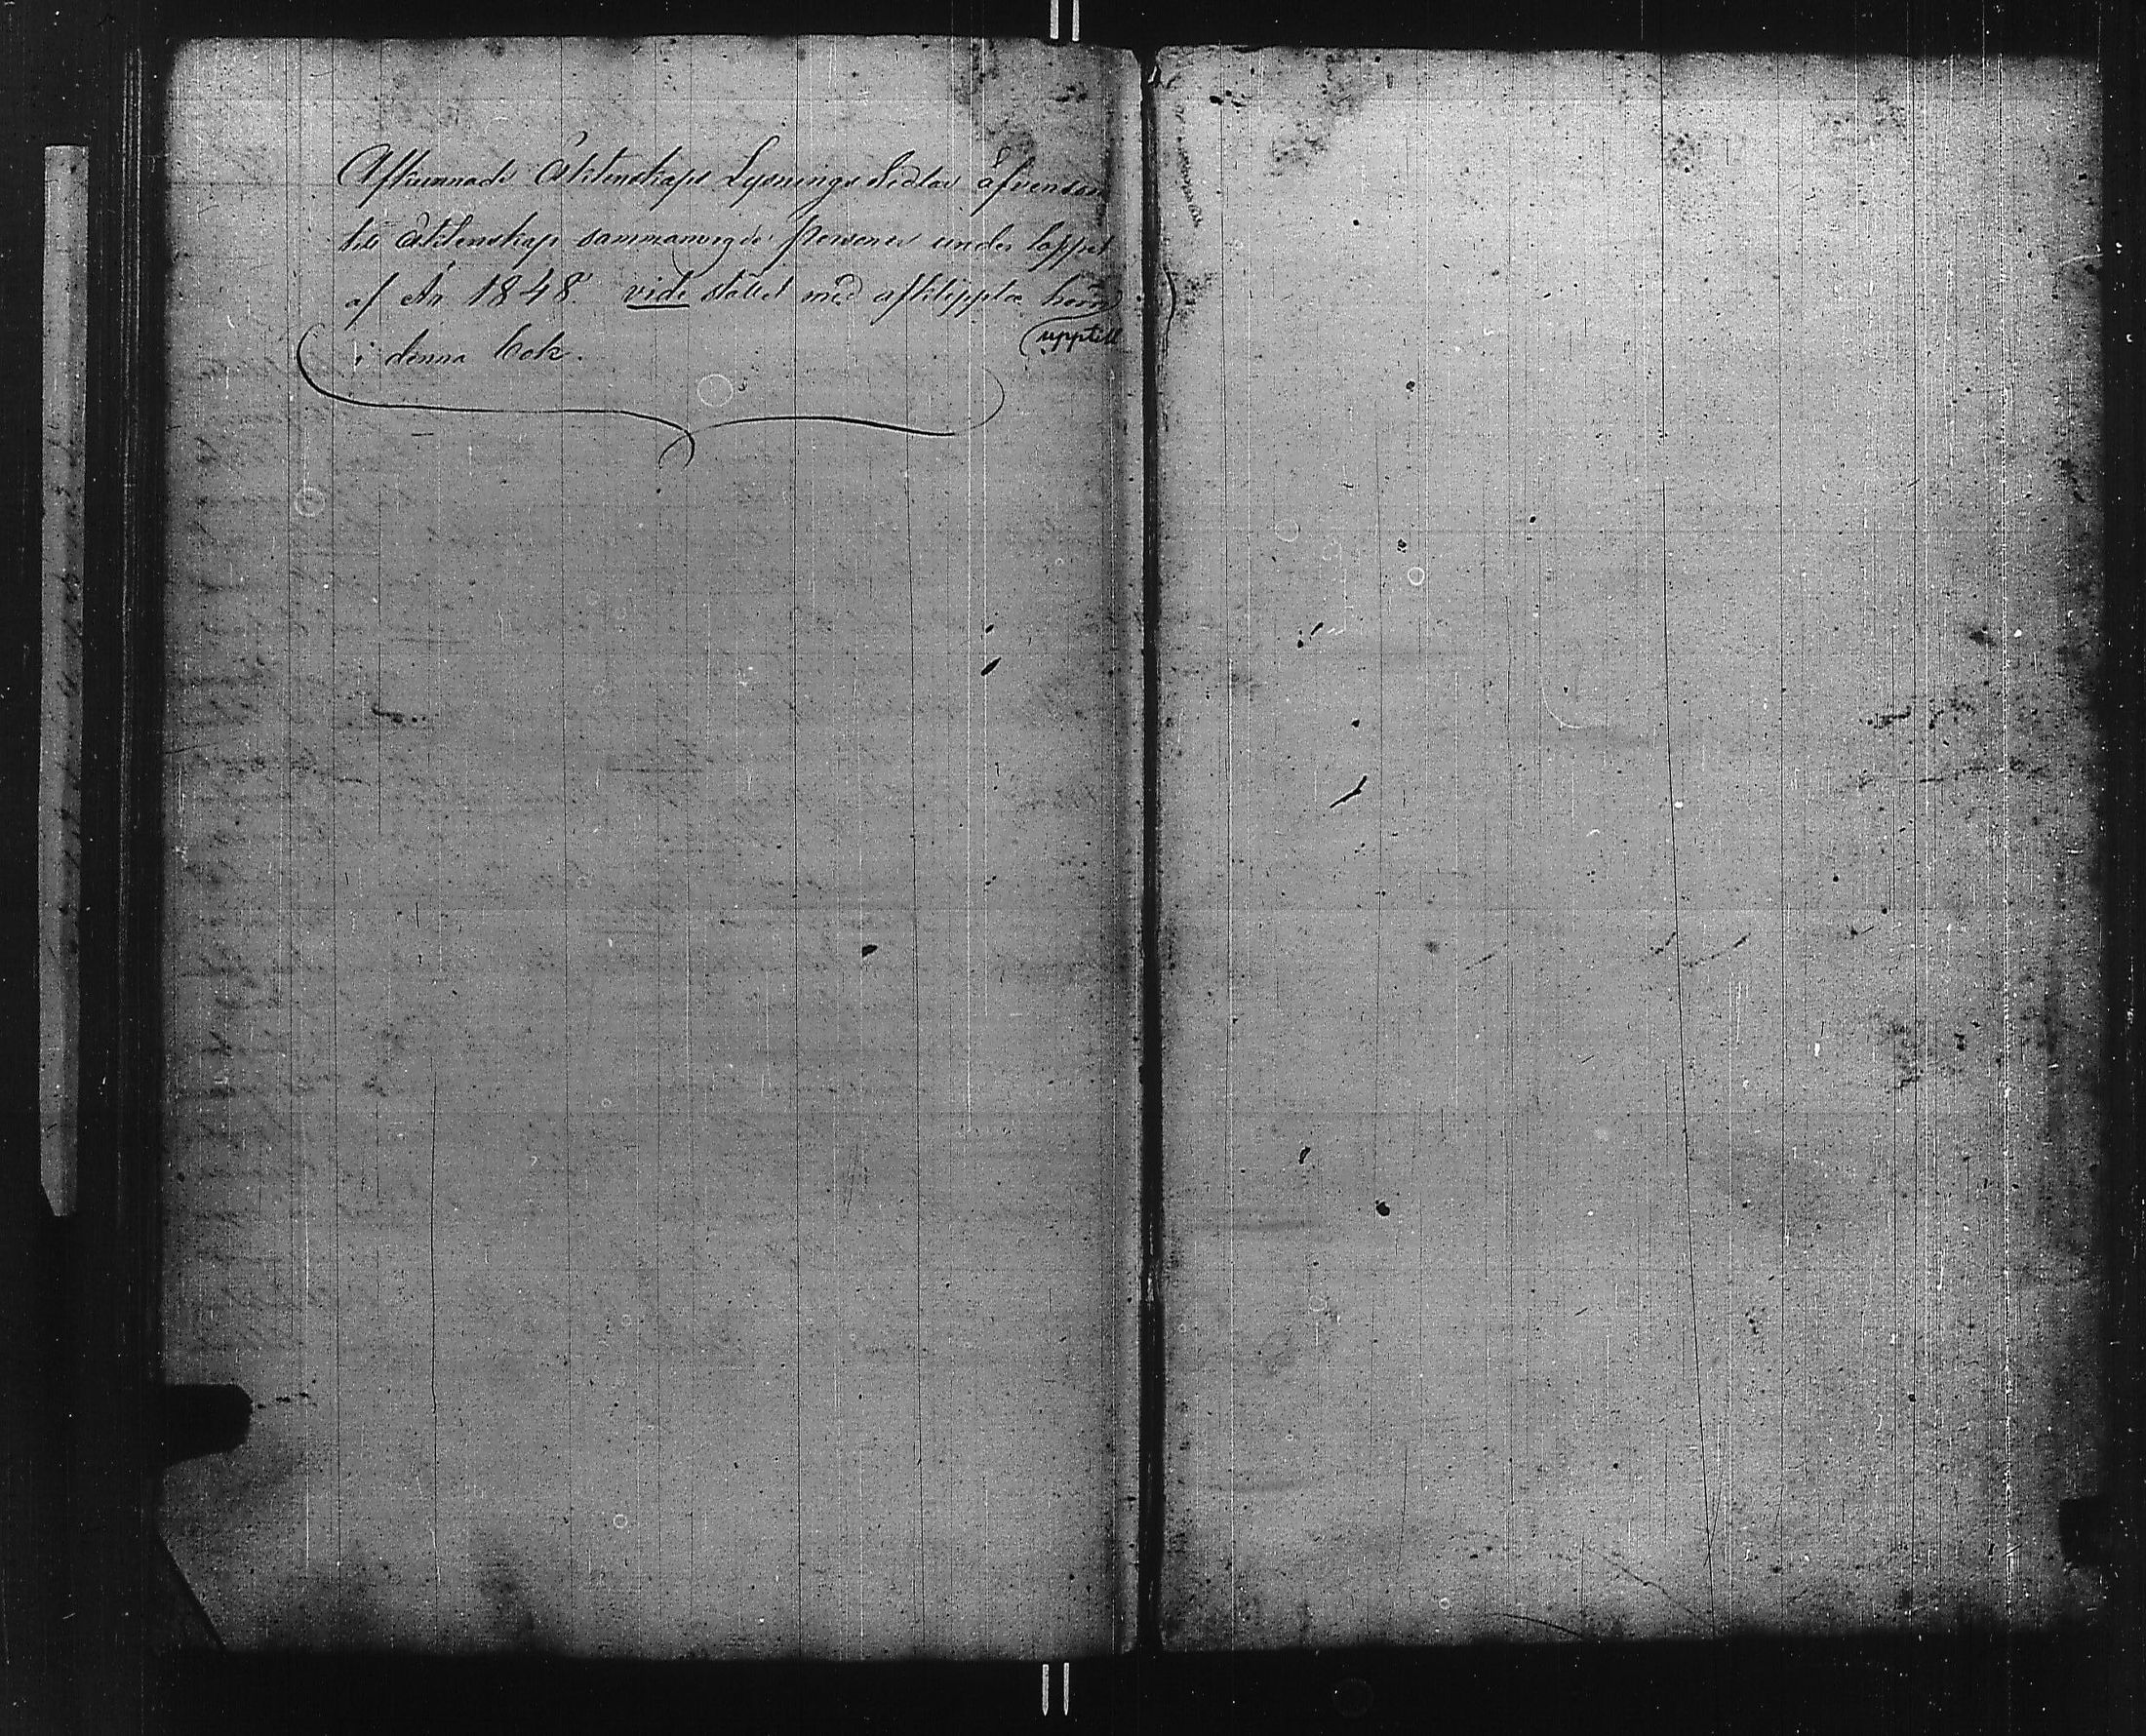 Afkunnade Äktenskaps Lysnings Sedlar äfvensom
till Äktenskap sammanvigde personer under loppet
af År 1848. vide slutet med afklippta hörn
upptill
i denna bok.